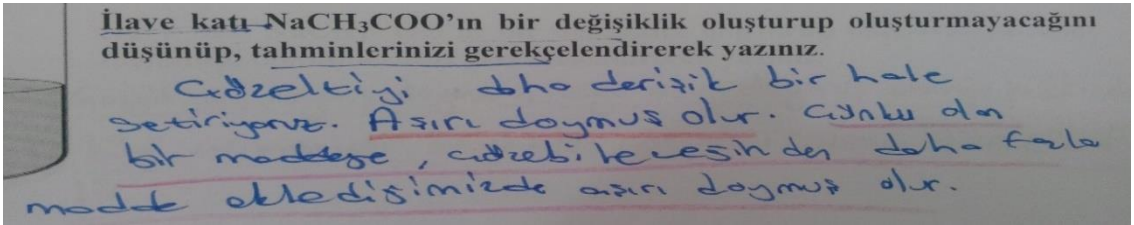 İlave katı NaCH₃COO'ın bir değişiklik oluşturup oluşturmayacağını
düşünüp, tahminlerinizi gerekçelendirerek yazınız.
Çözeltiyi daha derişik bir hale
getiriyoruz. Aşırı doymuş olur. Çünkü olan
bir maddeye, çözebileceğinden daha fazla
madde eklediğimizde aşırı doymuş olur.